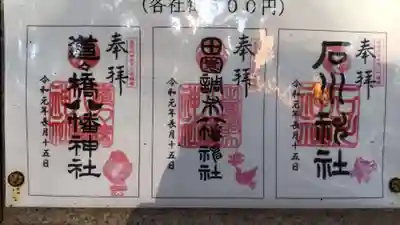 (各社 500円)
奉拝
道々橋八幡神社
令和元年長月十五日
奉拝
田園調布八幡神社
令和元年長月十五日
奉拝
石川神社
令和元年長月十五日